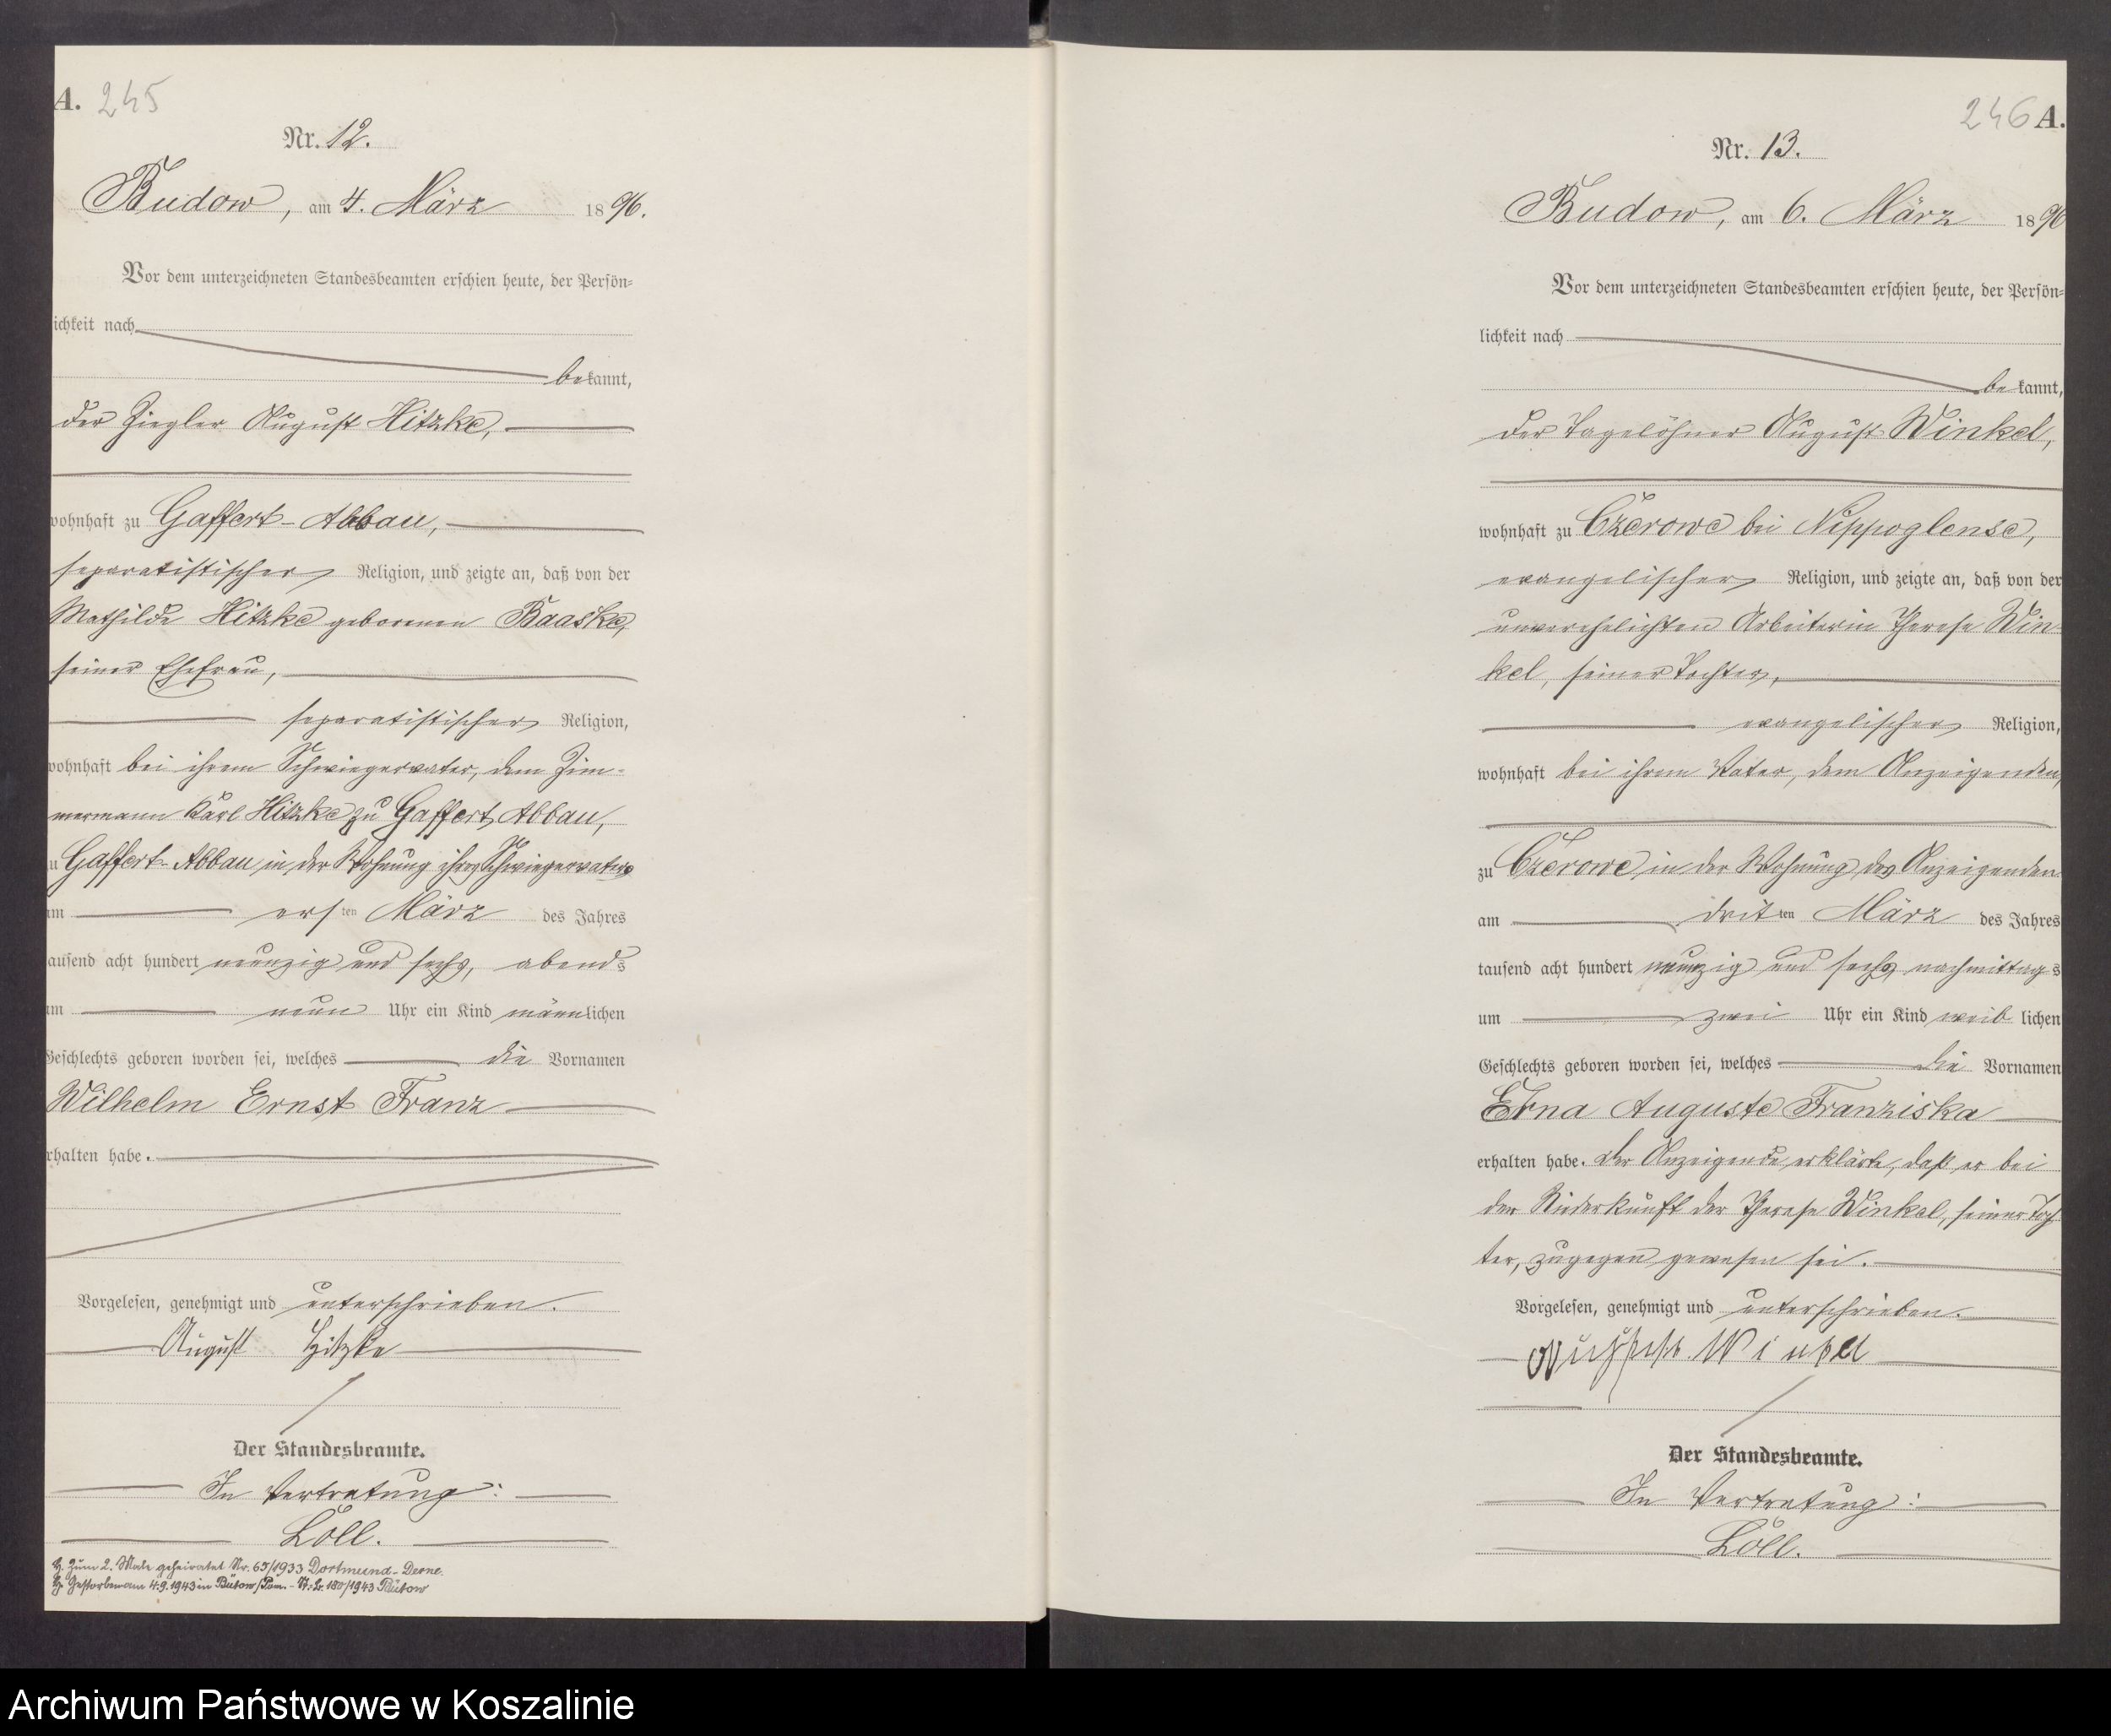 A. 245
Nr. 12.
Budow, am 4. März 1896.
Vor dem unterzeichneten Standesbeamten erschien heute, der Persön-
ichkeit nach
bekannt,
der Ziegler August Hitzke,
wohnhaft zu Gaffert-Abbau,
separatistischer Religion, und zeigte an, daß von der
Mathilde Hitzke geborenen Baaske,
seiner Ehefrau,
separatistischer Religion,
wohnhaft bei ihrem Schwiegervater, dem Zim-
mermann Karl Hitzke zu Gaffert Abbau,
u Gaffert-Abbau in der Wohnung ihres Schwiegervaters
am ersten März des Jahres
tausend acht hundert neunzig und sechs, abends
um neun Uhr ein Kind männlichen
Geschlechts geboren worden sei, welches die Vornamen
Wilhelm Ernst Franz
erhalten habe.
Vorgelesen, genehmigt und unterschrieben.
August Hitzke
Der Standesbeamte.
In Vertretung:
Löll.
Zum 2. Male geheiratet Nr. 65/1933 Dortmund-Derne.
Gestorben am 4.9.1943 in Bütow/Pom. - St. Nr. 180/1943 Bütow
246 A.
Nr. 13.
Budow, am 6. März 1896
Vor dem unterzeichneten Standesbeamten erschien heute, der Persön-
lichkeit nach
bekannt,
der Tagelöhner August Winkel,
wohnhaft zu Czerowe bei Nippoglense,
evangelischer Religion, und zeigte an, daß von der
unverehelichten Arbeiterin Therese Win
kel, seiner Tochter,
evangelischer Religion,
wohnhaft bei ihrem Vater, dem Anzeigenden,
zu Czerowe in der Wohnung des Anzeigenden
am dritten März des Jahres
tausend acht hundert neunzig und sechs nachmittags
um zwei Uhr ein Kind weiblichen
Geschlechts geboren worden sei, welches die Vornamen
Erna Auguste Franziska
erhalten habe. Der Anzeigende erklärte, daß er bei
der Niederkunft der Therese Winkel, seiner Toch
ter, zugegen gewesen sei.
Vorgelesen, genehmigt und unterschrieben.
August Winkel
Der Standesbeamte.
In Vertretung:
Löll.
Archiwum Państwowe w Koszalinie